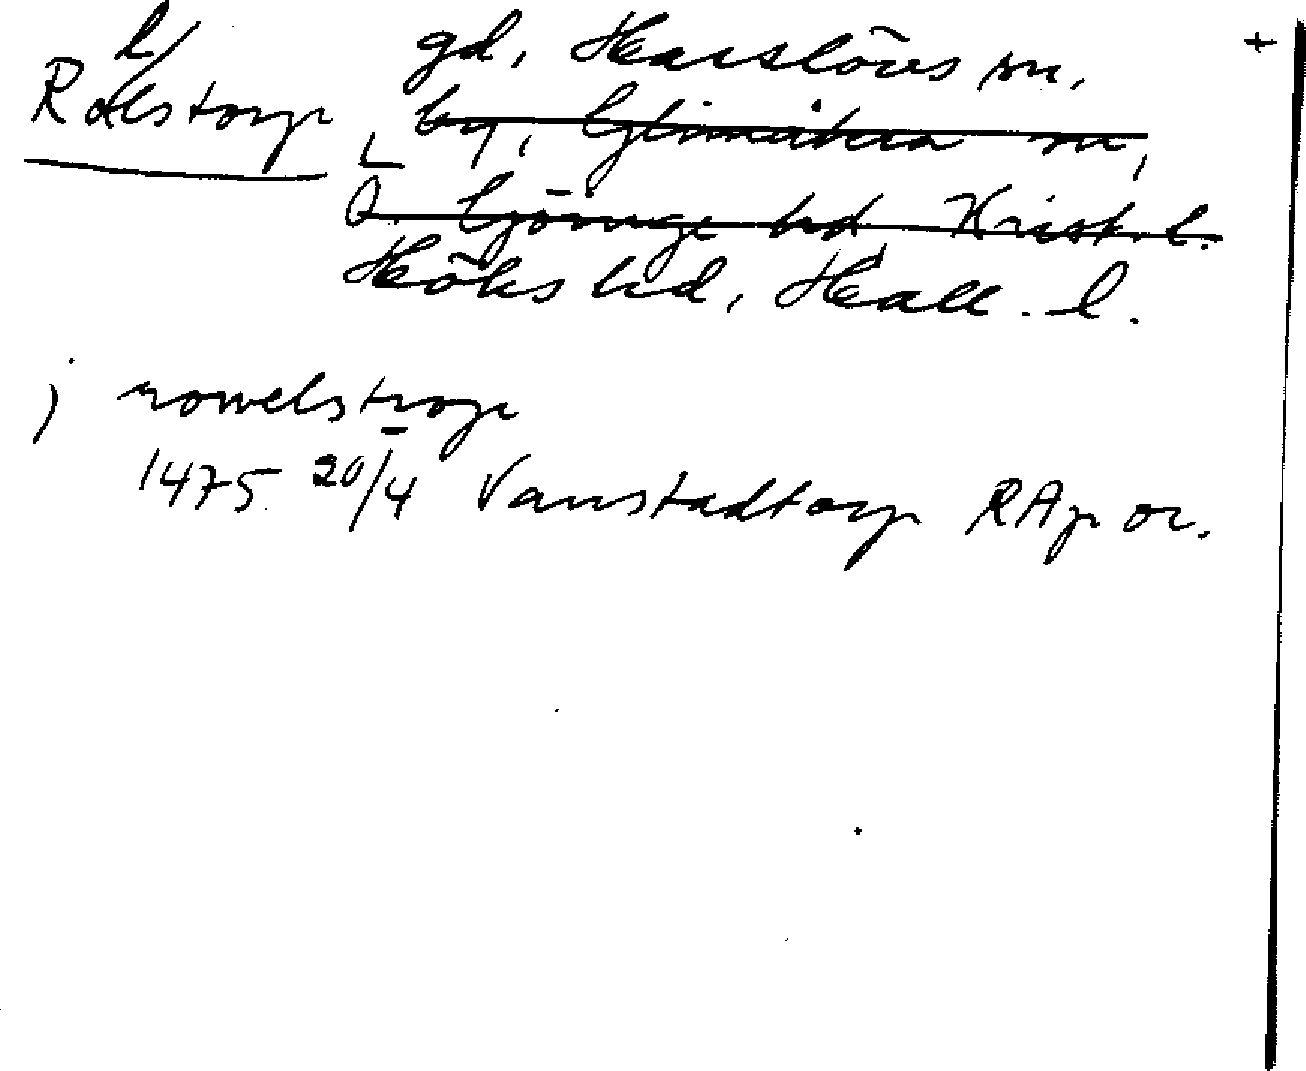 gd, Harslövs sn.
Rålstorp, by, Glimåkra sn,
Ö. Göinge hd Krist. l.
Höks hd, Hall. l.
j rowelstrop
1475 20/4 Vanstadtorp RAp or.